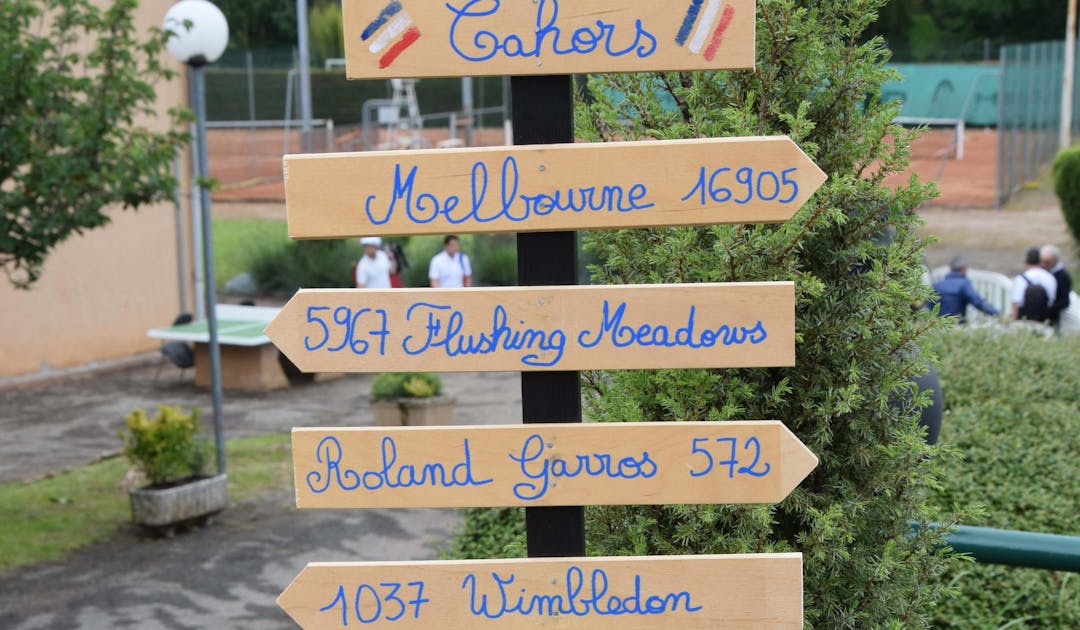 Cahors
Melbourne 16905
5967 Flushing Meadows
Roland Garros 572
1037 Wimbledon